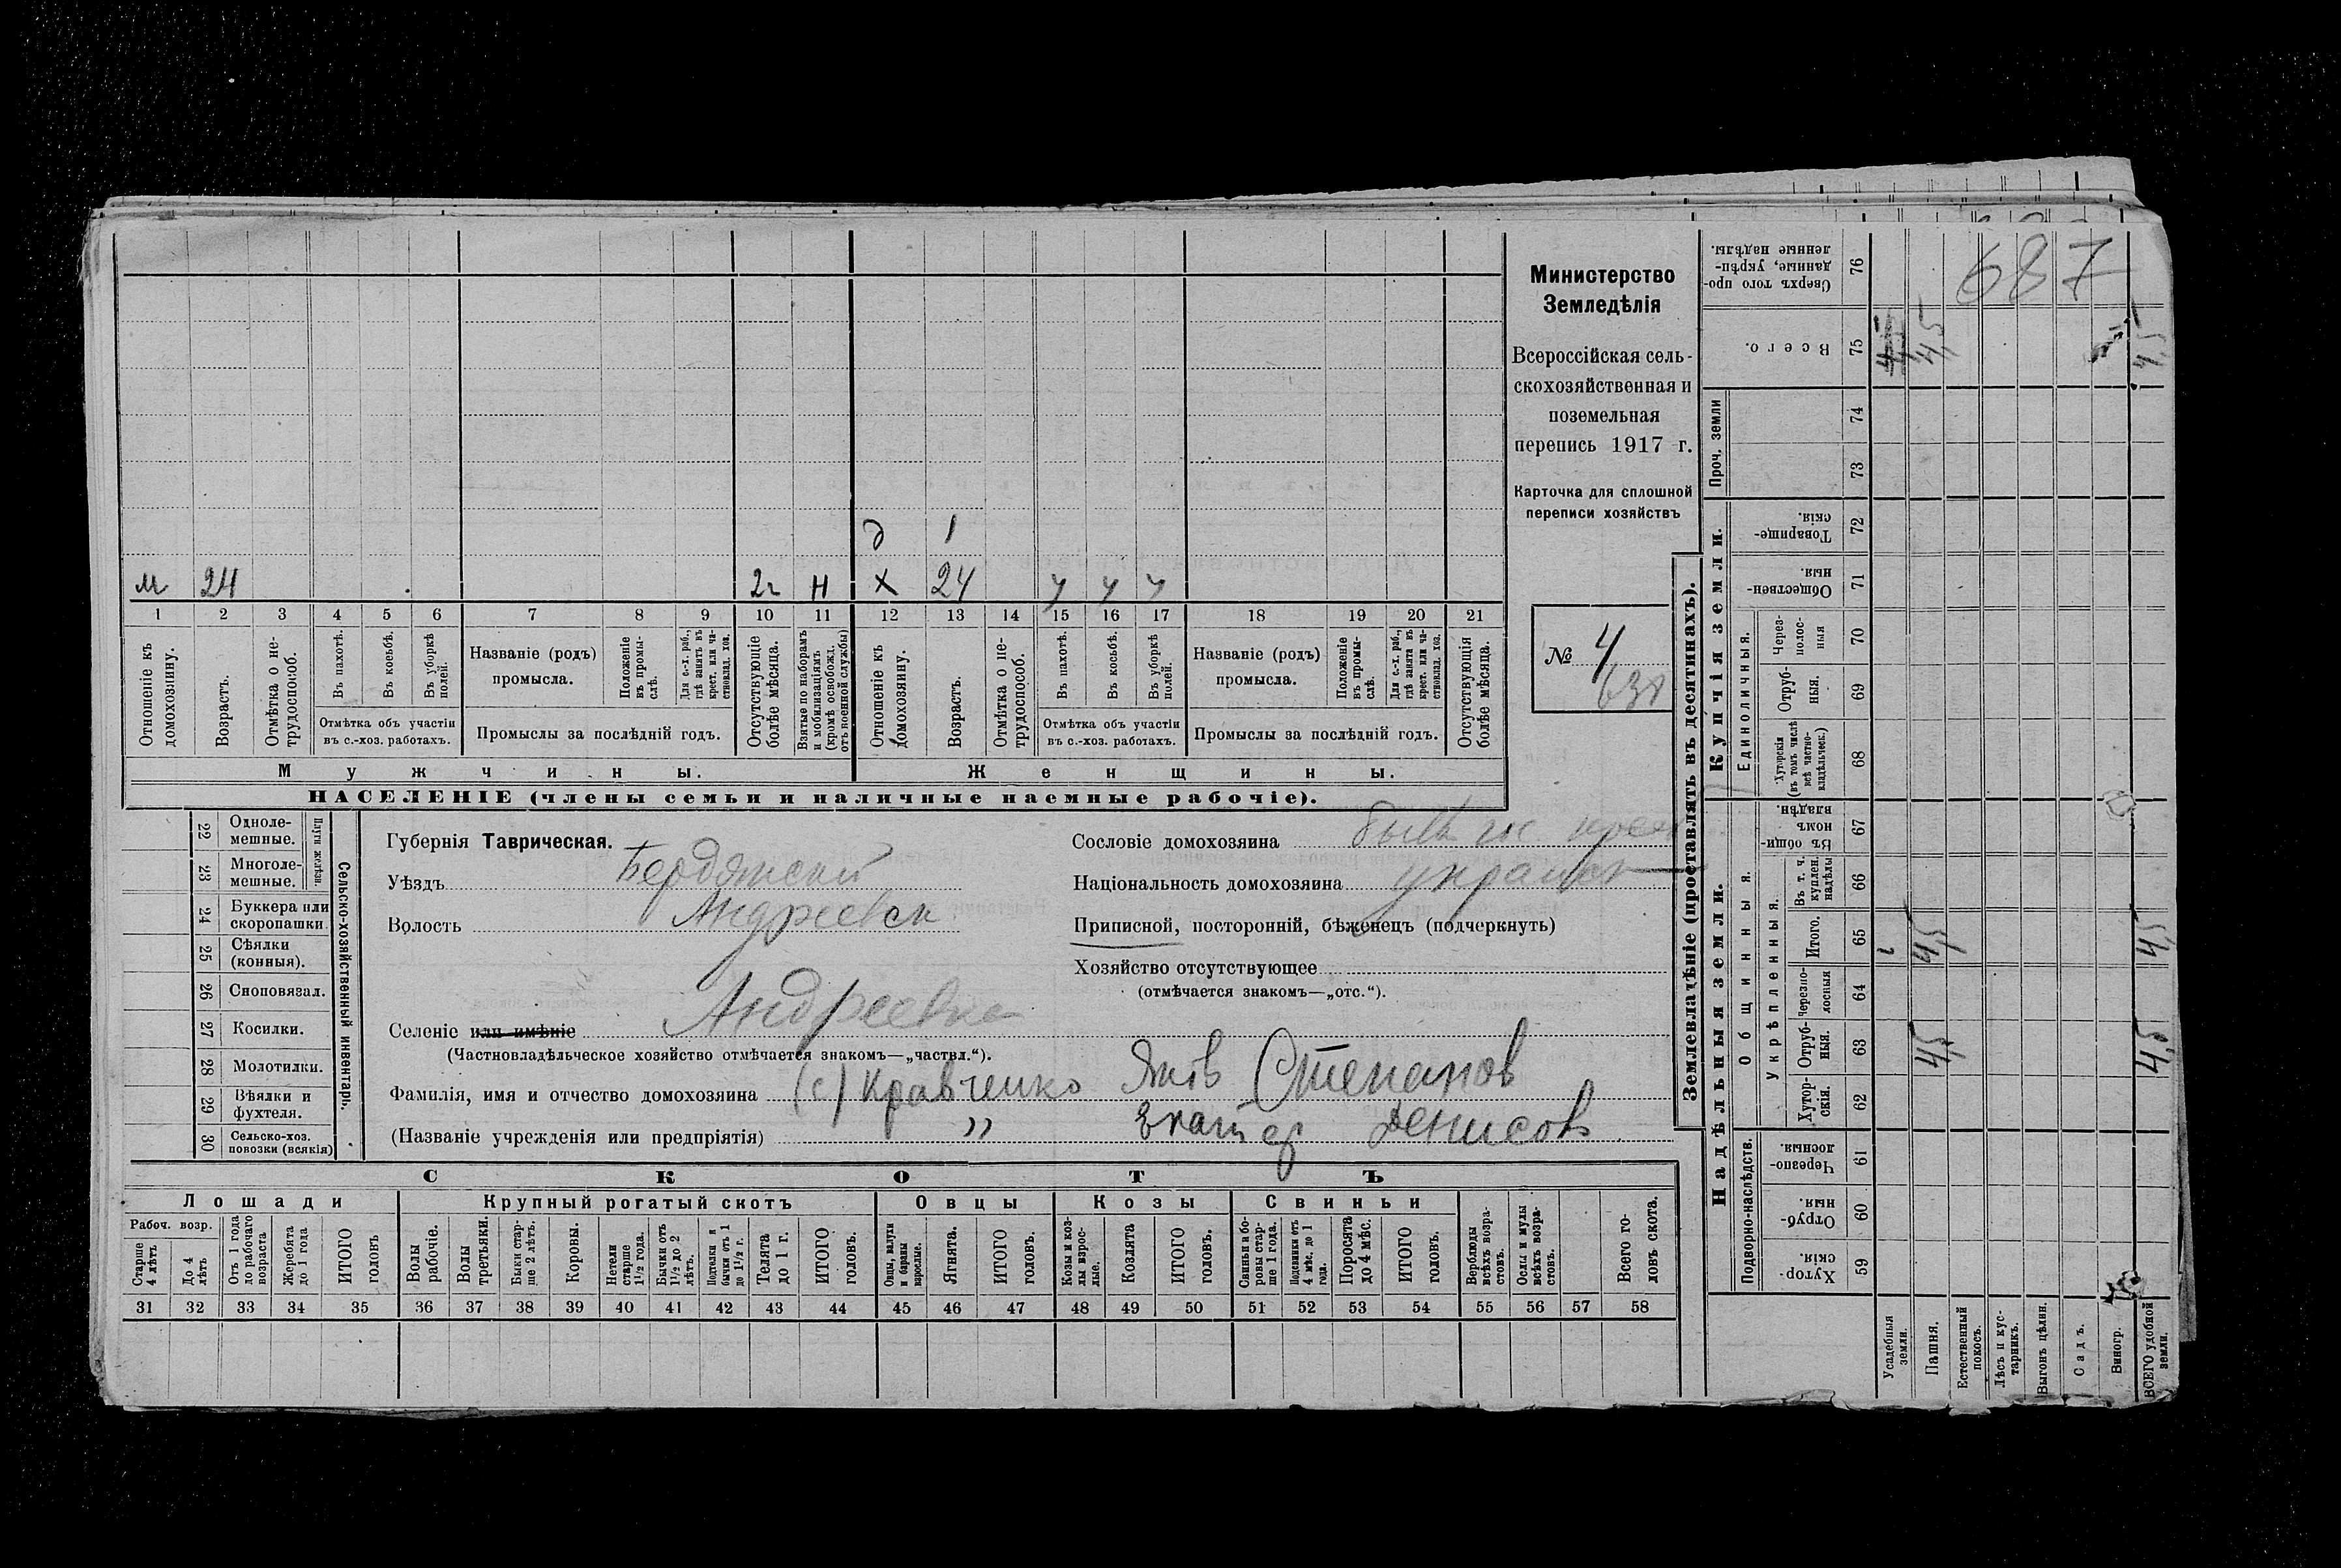 Министерство
Земледѣлія
Всероссійская сель-
скохозяйственная и
поземельная
перепись 1917 г.
Карточка для сплошной
переписи хозяйствъ
№ 4
687
д 1
м 24 2г н х 24 у у у
1 2 3 4 5 6 7 8 9 10 11 12 13 14 15 16 17 18 19 20 21
Отношеніе къ домохозяину.
Возрастъ.
Отмѣтка о не-
трудоспособ.
Въ пахотѣ.
Въ косьбѣ.
Въ уборкѣ
полей.
Отмѣтка объ участіи
въ с.-хоз. работахъ.
Названіе (родъ)
промысла.
Положеніе
въ промы-
слѣ.
Для с.-х. раб.,
гдѣ занятъ въ
крест. или ча-
стновлад. хоз.
Промыслы за послѣдній годъ.
Отсутствующіе
болѣе мѣсяца.
Взятые по наборамъ
и мобилизаціямъ
(кромѣ освобожд.
отъ военной службы)
Отношеніе къ
домохозяину.
Возрастъ.
Отмѣтка о не-
трудоспособ.
Въ пахотѣ.
Въ косьбѣ.
Въ уборкѣ
полей.
Отмѣтка объ участіи
въ с.-хоз. работахъ.
Названіе (родъ)
промысла.
Положеніе
въ промы-
слѣ.
Для с.-х. раб.,
гдѣ занята въ
крест. или ча-
стновлад. хоз.
Промыслы за послѣдній годъ.
Отсутствующія
болѣе мѣсяца.
Мужчины.
Женщины.
НАСЕЛЕНІЕ (члены семьи и наличные наемные рабочіе).
22 Одноле-
мешные.
23 Многоле-
мешные.
Плуги желѣзн.
24 Буккера или
скоропашки
25 Сѣялки
(конныя).
26 Сноповязал.
27 Косилки.
28 Молотилки.
29 Вѣялки и
фухтеля.
30 Сельско-хоз.
повозки (всякія)
Сельско-хозяйственный инвентарь.
Губернія Таврическая.
Уѣздъ Бердянский
Волость Андреевск
Селеніе или имѣніе Андреевка
(Частновладѣльческое хозяйство отмѣчается знакомъ—„частвл.“).
Фамилія, имя и отчество домохозяина (с) Кравченко Яков Степанов
(Названіе учрежденія или предпріятія) " Екатер Денисов
Сословіе домохозяина
Національность домохозяина украинск
Приписной, посторонній, бѣженецъ (подчеркнуть)
Хозяйство отсутствующее
(отмѣчается знакомъ—„отс.“).
СКОТЪ
Лошади
Крупный рогатый скотъ
Овцы
Козы
Свиньи
Рабоч. возр.
Старше
4 лѣтъ
До 4
лѣтъ
Отъ 1 года
до рабочаго
возраста
Жеребята
до 1 года
ИТОГО
головъ
Волы
рабочіе.
Волы
третьяки.
Быки стар-
ше 2 лѣтъ.
Коровы.
Нетели
старше
1½ года.
Бычки отъ
1½ до 2
лѣтъ.
Подтелки и
бычки отъ 1
до 1½ г.
Телята
до 1 г.
ИТОГО
головъ.
Овцы, валухи
и бараны
взрослые.
Ягнята.
ИТОГО
головъ.
Козы и коз-
лы взрос-
лые.
Козлята
ИТОГО
головъ.
Свиньи и бо-
ровы стар-
ше 1 года.
Подсвинки отъ
4 мѣс. до 1
года.
Поросята
до 4 мѣс.
ИТОГО
головъ.
Верблюды
всѣхъ возра-
стовъ.
Ослы и мулы
всѣхъ возра-
стовъ.
Всего го-
ловъ скота.
31 32 33 34 35 36 37 38 39 40 41 42 43 44 45 46 47 48 49 50 51 52 53 54 55 56 57 58
Землевладѣніе (проставлять въ десятинахъ).
Надѣльныя земли.
Купчія земли.
Проч. земли
Подворно-наслѣдств.
Общинныя.
Укрѣпленныя.
Единоличныя.
Сверхъ того про-
данные, укрѣп-
ленные надѣлы. 76
Всего. 75 4,5 4,5
74
73
Товарище-
скія. 72
Обществен-
ныя. 71
Через-
полос-
ныя 70
Отруб-
ныя. 69
Хуторскія
(въ томъ числѣ
всѣ частно-
владѣльческ.) 68
Въ общин-
номъ
владѣн. 67
Въ т. ч.
куплен.
надѣлы 66
Итого. 65 4,5 4,5
Черезпо-
лосныя 64
Отруб-
ныя. 63 4,5 4,5
Хутор-
скія. 62
Черезпо-
лосныя. 61
Отруб-
ныя. 60
Хутор-
скія. 59
Усадебныя
земли.
Пашня.
Естественный
покосъ.
Лѣсъ и кус-
тарникъ.
Выгонъ цѣлин.
Садъ.
Виногр.
ВСЕГО удобной
земли.